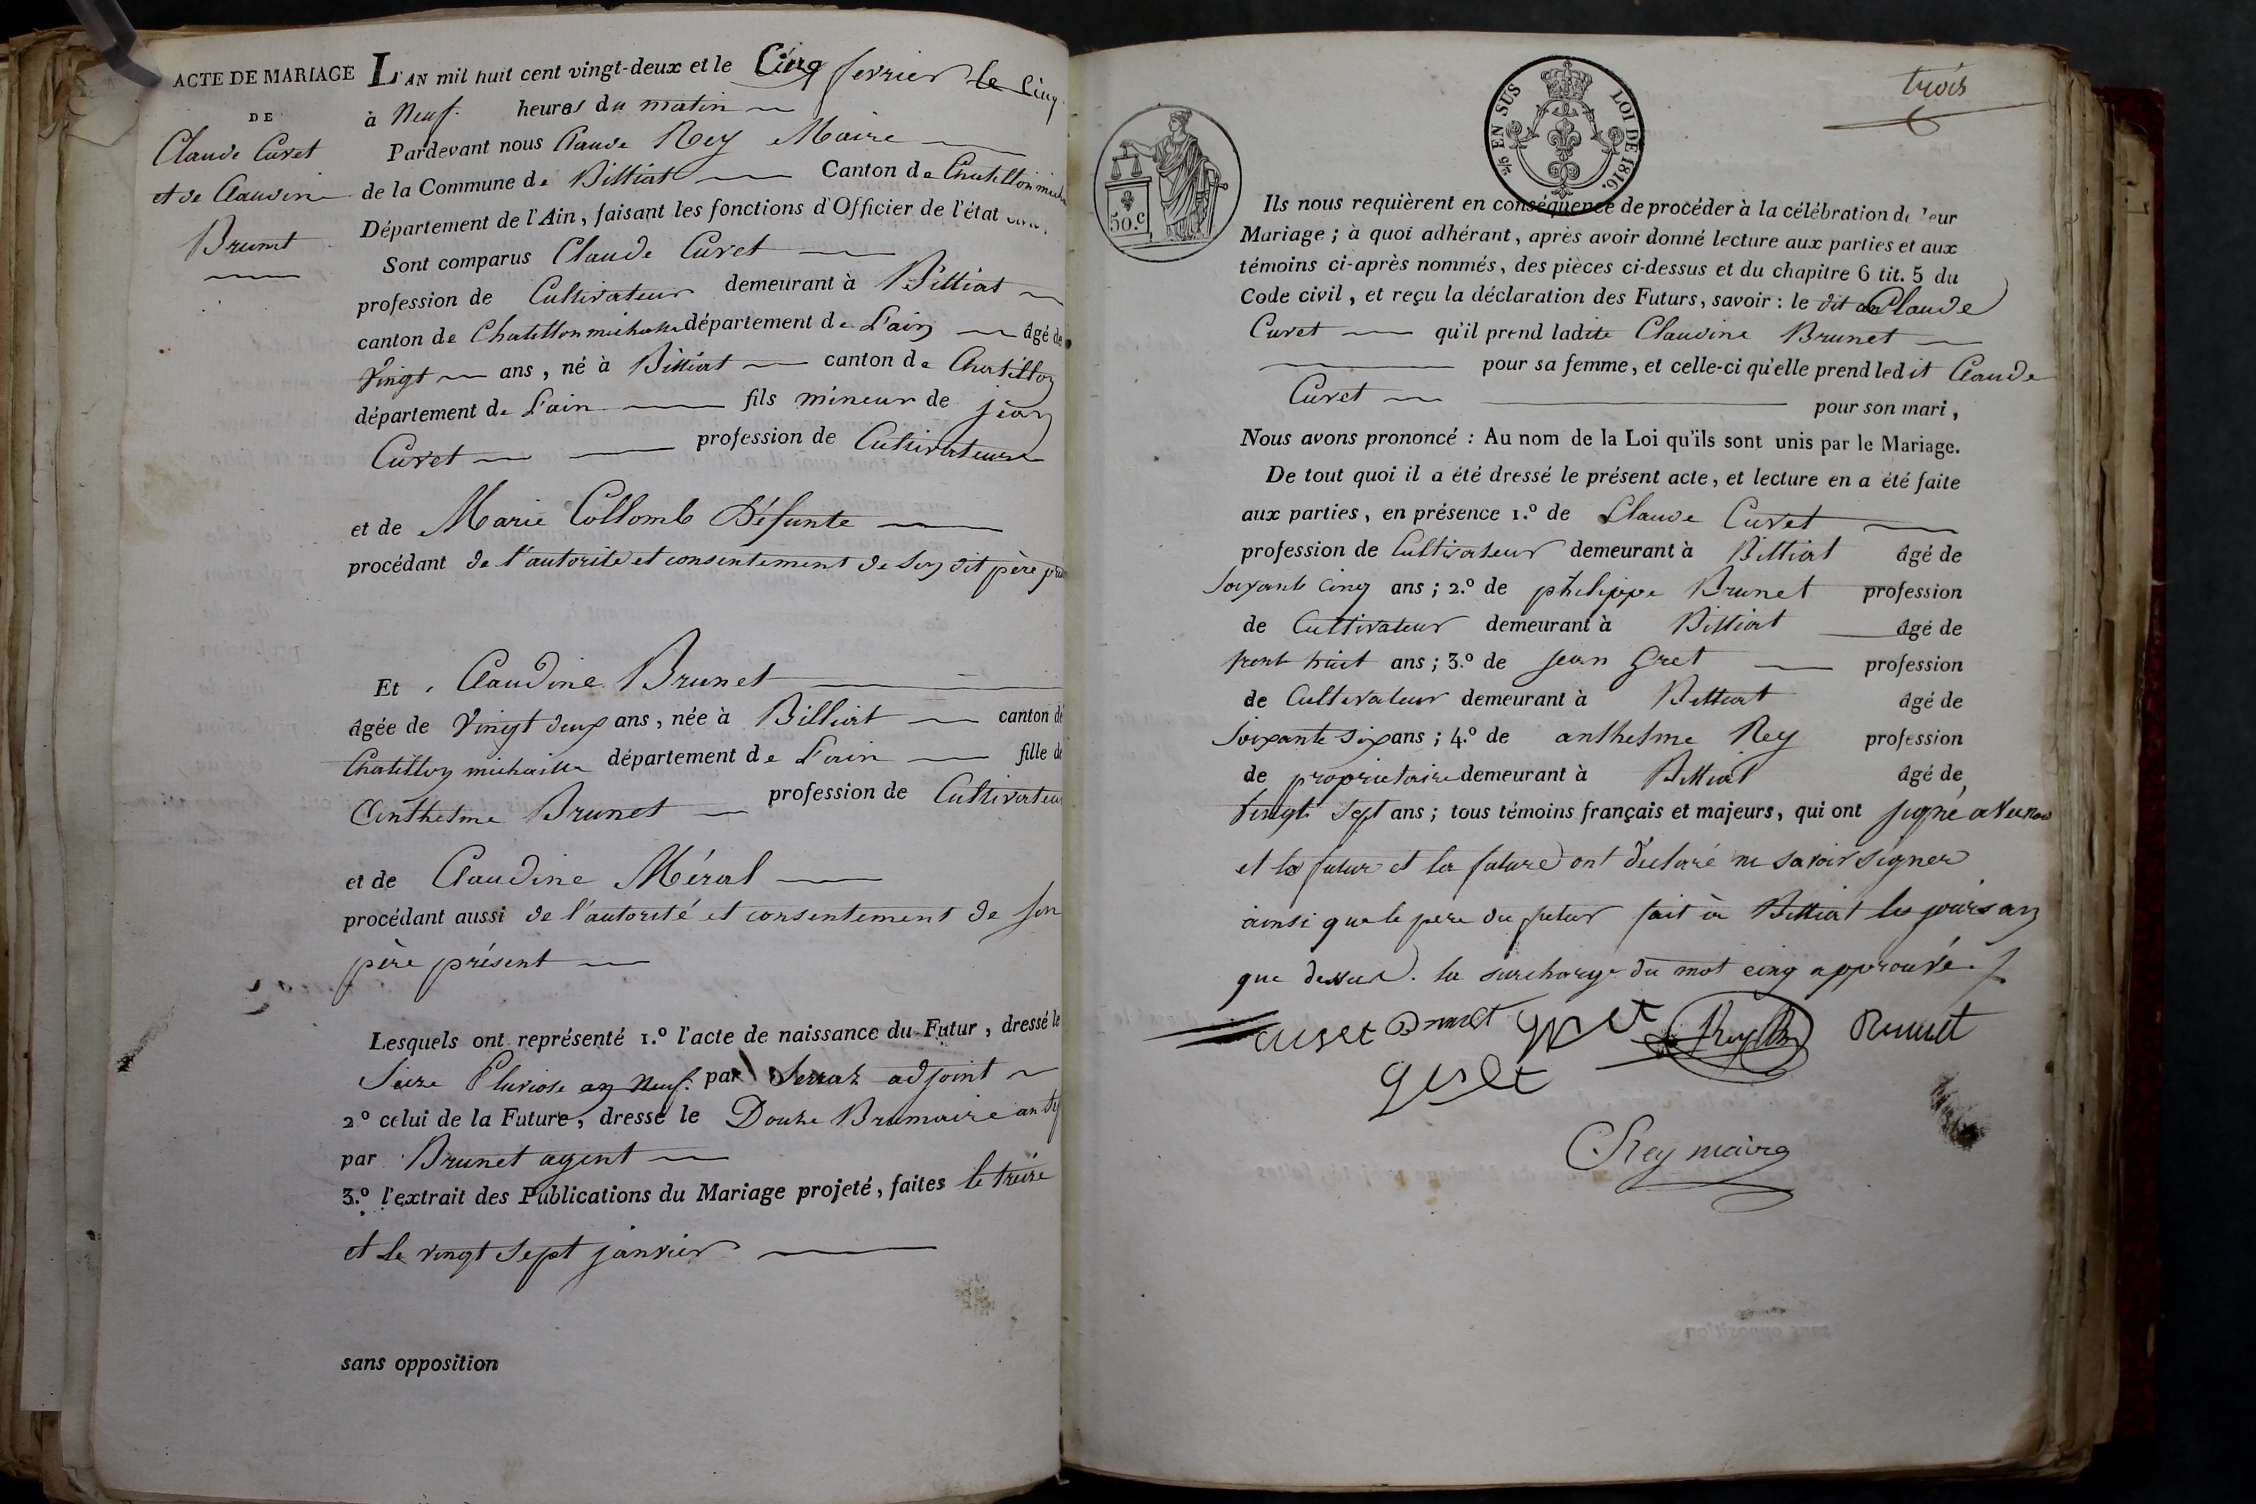 ACTE DE MARIAGE
DE
Claude Curet
et de Claudine
Brunet
L'AN mil huit cent vingt-deux et le Cinq fevrier le Cinq
à Neuf heures du matin
Pardevant nous Claude Rey Maire
de la Commune de Billiat Canton de Chatillon
Département de l'Ain, faisant les fonctions d'Officier de l'état
Sont comparus Claude Curet
profession de Cultivateur demeurant à Billiat
canton de Chatillon michaille département de L'ain âgé de
Vingt ans, né à Billiat canton de Chatillon
département de L'ain fils mineur de jean
Curet profession de Cultivateur
et de Marie Collomb Défunte
procédant de l'autorité et consentement de son dit père
Et Claudine Brunet
âgée de Vingt deux ans, née à Billiat canton de
Chatillon michaille département de L'ain fille de
Anthelme Brunet profession de Cultivateur
et de Claudine Méral
procédant aussi de l'autorité et consentement de son
père présent
Lesquels ont représenté 1.º l'acte de naissance du Futur, dressé le
Seize Pluviose an Neuf par Serraz adjoint
2º celui de la Future, dressé le Douze Brumaire an
par Brunet agent
3.º l'extrait des Publications du Mariage projeté, faites le treize
et le vingt sept janvier
sans opposition
50.c
EN SUS LOI DE 1816.
trois
Ils nous requièrent en conséquence de procéder à la célébration de leur
Mariage; à quoi adhérant, après avoir donné lecture aux parties et aux
témoins ci-après nommés, des pièces ci-dessus et du chapitre 6 tit. 5 du
Code civil, et reçu la déclaration des Futurs, savoir: le dit Claude
Curet qu'il prend ladite Claudine Brunet
pour sa femme, et celle-ci qu'elle prend ledit Claude
Curet pour son mari,
Nous avons prononcé: Au nom de la Loi qu'ils sont unis par le Mariage.
De tout quoi il a été dressé le présent acte, et lecture en a été faite
aux parties, en présence 1.º de Claude Curet
profession de Cultivateur demeurant à Billiat âgé de
Soixante cinq ans; 2.º de philippe Brunet profession
de Cultivateur demeurant à Billiat âgé de
trente huit ans; 3.º de jean Gret profession
de Cultivateur demeurant à Billiat âgé de
Soixante six ans; 4.º de anthelme Rey profession
de proprietaire demeurant à Billiat âgé de
Vingt Sept ans; tous témoins français et majeurs, qui ont signé avec nous
et le futur et la future ont déclaré ne savoir signer
ainsi que le pere du futur fait à Billiat les jours an
que dessus. la surcharge du mot cinq approuvé
curet Brunet gret Rey Brunet
Rey maire